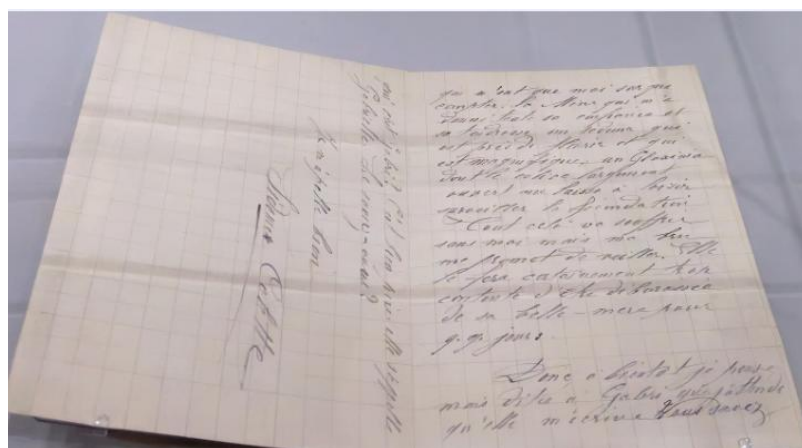 qui n'ont que moi sur qui
compter. la Minne qui m'a
donné toute sa confiance et
sa tendresse un
est près de fleurir et qui
est magnifique – un Gloxinia
dont le calice largement
ouvert me laisse à loisir
surveiller la fécondation
Tout cela va souffrir
sans moi mais ma bru
me promet de veiller. Elle
le fera certainement trop
contente d'être débarrassée
de sa belle-mère pour
q.q. jours.
Donc à bientôt je pense
mais dites à Gabri que j'attends
qu'elle m'écrive Vous savez
qui est Gabri? C'est bien elle s'appelle
Gabrielle Le savez-vous?
Je m'appelle bien
Sidonie Colette